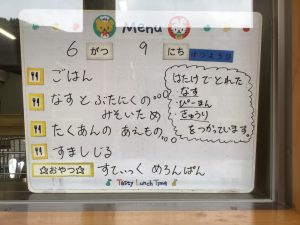 Menu
6 がつ 9 にち げつようび
ごはん
なすとぶたにくの
みそいため
たくあんの あえもの
すましじる
☆おやつ☆ すてぃっく めろんぱん
はたけでとれた
なす
ぴーまん
きゅうり
をつかっています。
Tasty Lunch Time